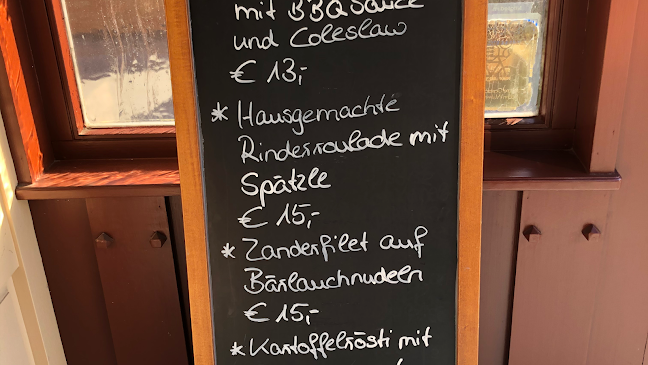 mit BBQ Sauce
und Coleslaw
€ 13,-
* Hausgemachte
Rinderroulade mit
Spätzle
€ 15,-
* Zanderfilet auf
Bärlauchnudeln
€ 15,-
* Kartoffelrösti mit